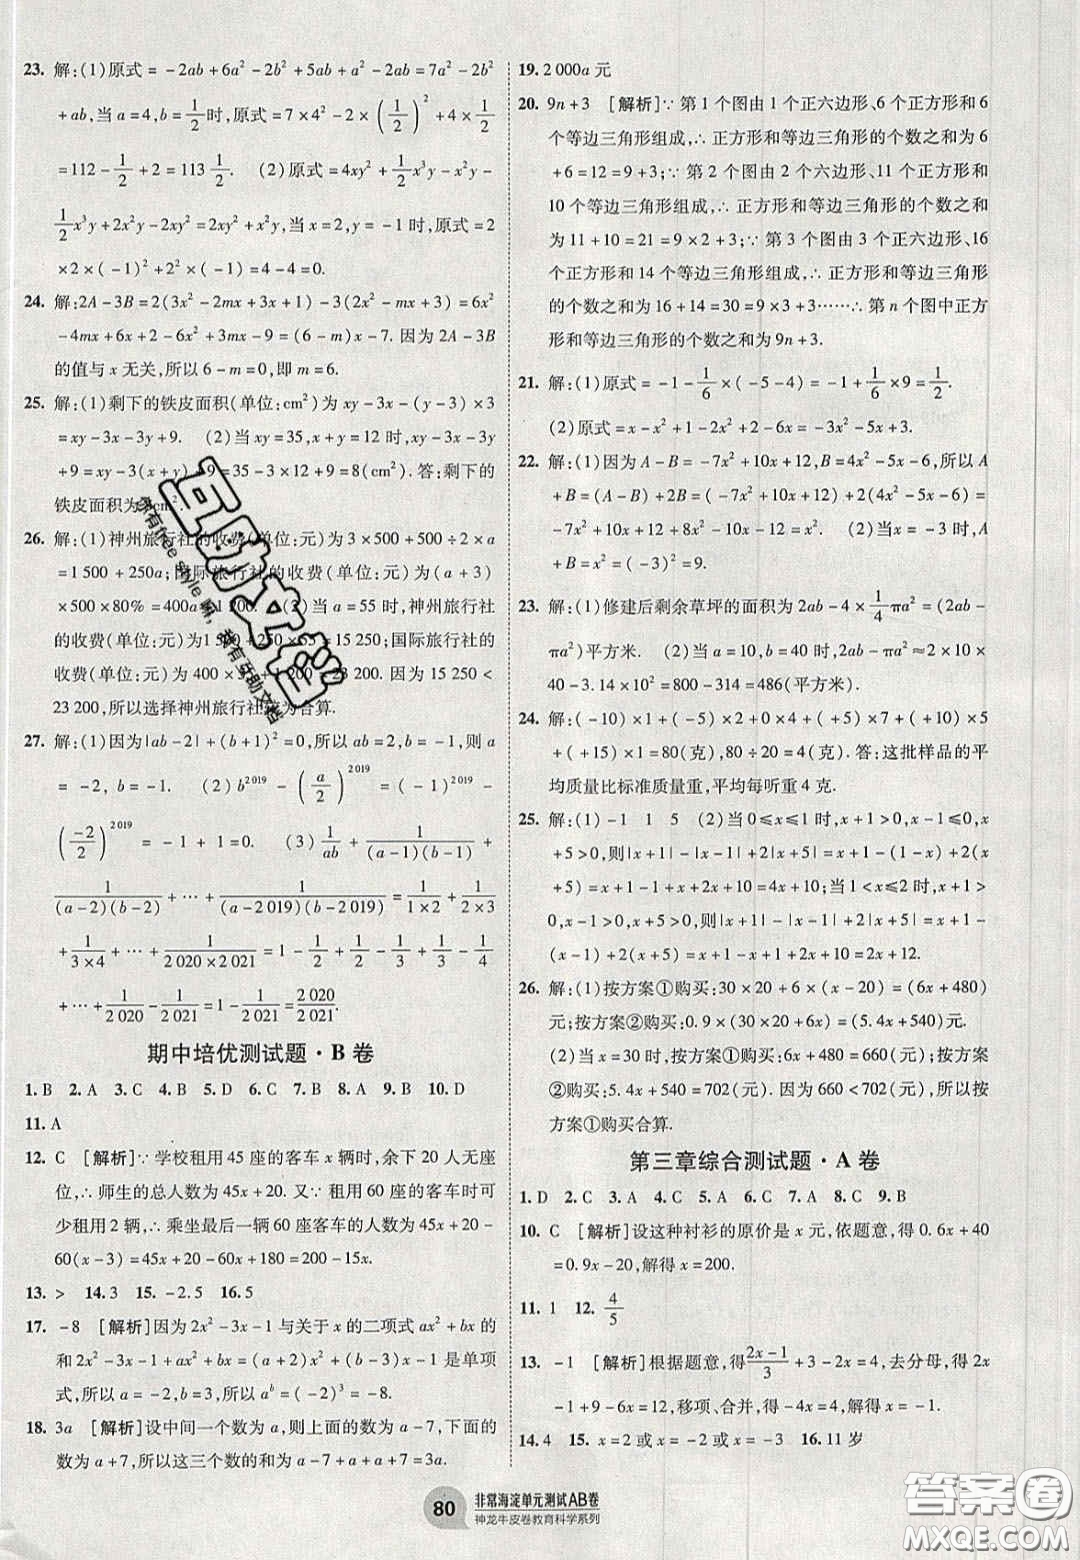 23. 解:(1)原式=-2ab+6a²-2b²+5ab+a²-2ab=7a²-2b²
+ab,当a=4,b=1/2时,原式=7×4²-2×(1/2)²+4×1/2
=112-1/2+2=113 1/2. (2)原式=4xy²+1/2x³y-x²y-
1/2x³y+2x²y-2xy²=2xy²+x²y,当x=2,y=-1时,原式=2
×2×(-1)²+2²×(-1)=4-4=0.
24. 解:2A-3B=2(3x²-2mx+3x+1)-3(2x²-mx+3)=6x²
-4mx+6x+2-6x²+3mx-9=(6-m)x-7.因为2A-3B
的值与x无关,所以6-m=0,即m=6.
25. 解:(1)剩下的铁皮面积(单位:cm²)为xy-3x-(y-3)×3
=xy-3x-3y+9. (2)当xy=35,x+y=12时,xy-3x-3y
+9=xy-3(x+y)+9=35-3×12+9=8(cm²).答:剩下的
铁皮面积为8cm².
26. 解:(1)神州旅行社的收费(单位:元)为3×500+500÷2×a
=1 500+250a;国际旅行社的收费(单位:元)为(a+3)
×500×80%=400a+1 200. (2)当a=55时,神州旅行社
的收费(单位:元)为1 500+250×55=15 250;国际旅行社的
收费(单位:元)为400×55+1 200=23 200.因为15 250<
23 200,所以选择神州旅行社较为合算.
27. 解:(1)因为|ab-2|+(b+1)²=0,所以ab=2,b=-1,则a
=-2,b=-1. (2)b^2019-(a/2)^2019=(-1)^2019-
(-2/2)^2019=-1+1=0. (3)1/ab+1/(a-1)(b-1)+
1/(a-2)(b-2)+…+1/(a-2 019)(b-2 019)=1/1×2+1/2×3
+1/3×4+…+1/2 020×2 021=1-1/2+1/2-1/3+1/3-1/4
+…+1/2 020-1/2 021=1-1/2 021=2 020/2 021.
期中培优测试题·B卷
1. B 2. A 3. C 4. B 5. D 6. C 7. B 8. A 9. B 10. D
11. A
12. C [解析]∵学校租用45座的客车x辆时,余下20人无座
位,∴师生的总人数为45x+20.又∵租用60座的客车时可
少租用2辆,∴乘坐最后一辆60座客车的人数为45x+20-
60(x-3)=45x+20-60x+180=200-15x.
13. > 14. 3 15. -2.5 16. 5
17. -8 [解析]因为2x²-3x-1与关于x的二项式ax²+bx的
和2x²-3x-1+ax²+bx=(a+2)x²+(b-3)x-1是单项
式,所以a=-2,b=3,所以a^b=(-2)³=-8.
18. 3a [解析]设中间一个数为a,则上面的数为a-7,下面的
数为a+7,所以这三个数的和为a-7+a+a+7=3a.
19. 2 000a元
20. 9n+3 [解析]∵第1个图由1个正六边形、6个正方形和6
个等边三角形组成,∴正方形和等边三角形的个数之和为6
+6=12=9+3;∵第2个图由2个六边形、11个正方形和
10个等边三角形组成,∴正方形和等边三角形的个数之和
为11+10=21=9×2+3;∵第3个图由3个六边形、16
个正方形和14个等边三角形组成,∴正方形和等边三角形
的个数之和为16+14=30=9×3+3……∴第n个图中正方
形和等边三角形的个数之和为9n+3.
21. 解:(1)原式=-1-1/6×(-5+4)×9=-1+1/6×9=1/2.
(2)原式=x-x²+1-2x²+2-6x=-3x²-5x+3.
22. 解:(1)因为A-B=-7x²+10x+12,B=4x²-5x-6,所以A
+B=(A-B)+2B=-7x²+10x+12+2(4x²-5x-6)=
-7x²+10x+12+8x²-10x-12=x². (2)当x=-3时,A+
B=x²=(-3)²=9.
23. 解:(1)修建后剩余草坪的面积为2ab-4×1/4πa²=(2ab-
πa²)平方米. (2)当a=10,b=40时,2ab-πa²≈2×10×
40-3.14×10²=800-314=486(平方米).
24. 解:(-10)×1+(-5)×2+0×3+(+5)×4+(+10)×5
+(+15)×1=80(克),80÷20=4(克).答:这批样品的平
均质量比标准质量重,平均每听重4克.
25. 解:(1)-1 1 5 (2)当0≤x≤1时,x+1>0,x-1≤0,x
+5>0,则|x+1|-|x-1|+2|x+5|=x+1-(1-x)+2(x
+5)=x+1-1+x+2x+10=4x+10;当1<x≤2时,x+1>
0,x-1>0,x+5>0,则|x+1|-|x-1|+2|x+5|=x+1-
(x-1)+2(x+5)=x+1-x+1+2x+10=2x+12.
26. 解:(1)按方案①购买:30×20+6(x-20)=(6x+480)
元;按方案②购买:0.9×(30×20+6x)=(5.4x+540)元.
(2)当x=30时,按方案①购买:6x+480=660(元);按方案
②购买:5.4x+540=702(元).因为660<702(元),所以按
方案①购买合算.
第三章综合测试题·A卷
1. D 2. C 3. A 4. C 5. C 6. B 7. A 8. C 9. B
10. C [解析]设这种衬衫的原价是x元,依题意,得0.6x+40
=0.9x-20,解得x=200.
11. 1 12. 4/5
13. -1 [解析]根据题意,得(2x-1)/3+3-2x=4,去分母,得2x
-1+9-6x=12,移项、合并,得-4x=4,解得x=-1.
14. 4 15. x=2或x=-2或x=-3 16. 11岁
80 非常海淀单元测试AB卷
神龙牛皮卷教育科学系列
互助文档
答案圈
MXQE.COM